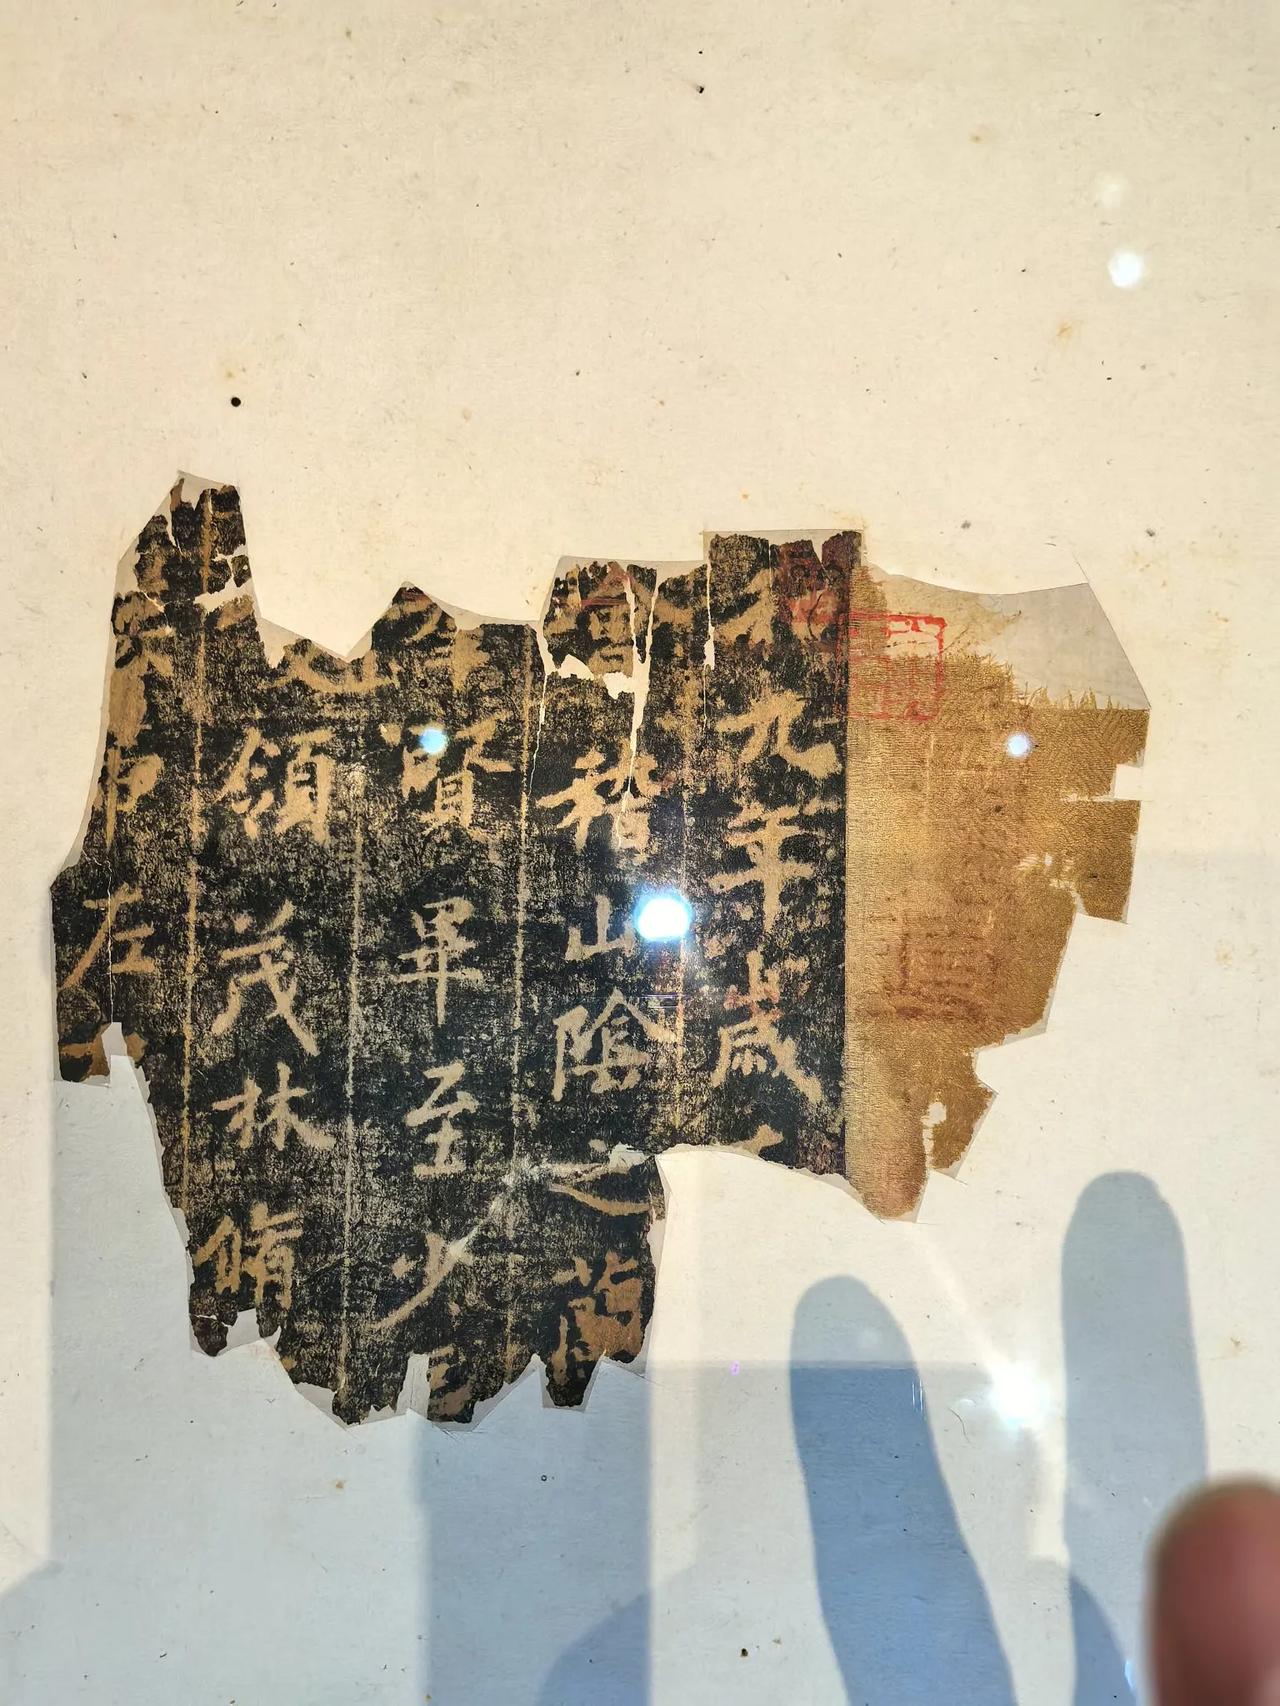 和九年歲
會稽山陰之蘭
賢畢至少
領茂林脩
左